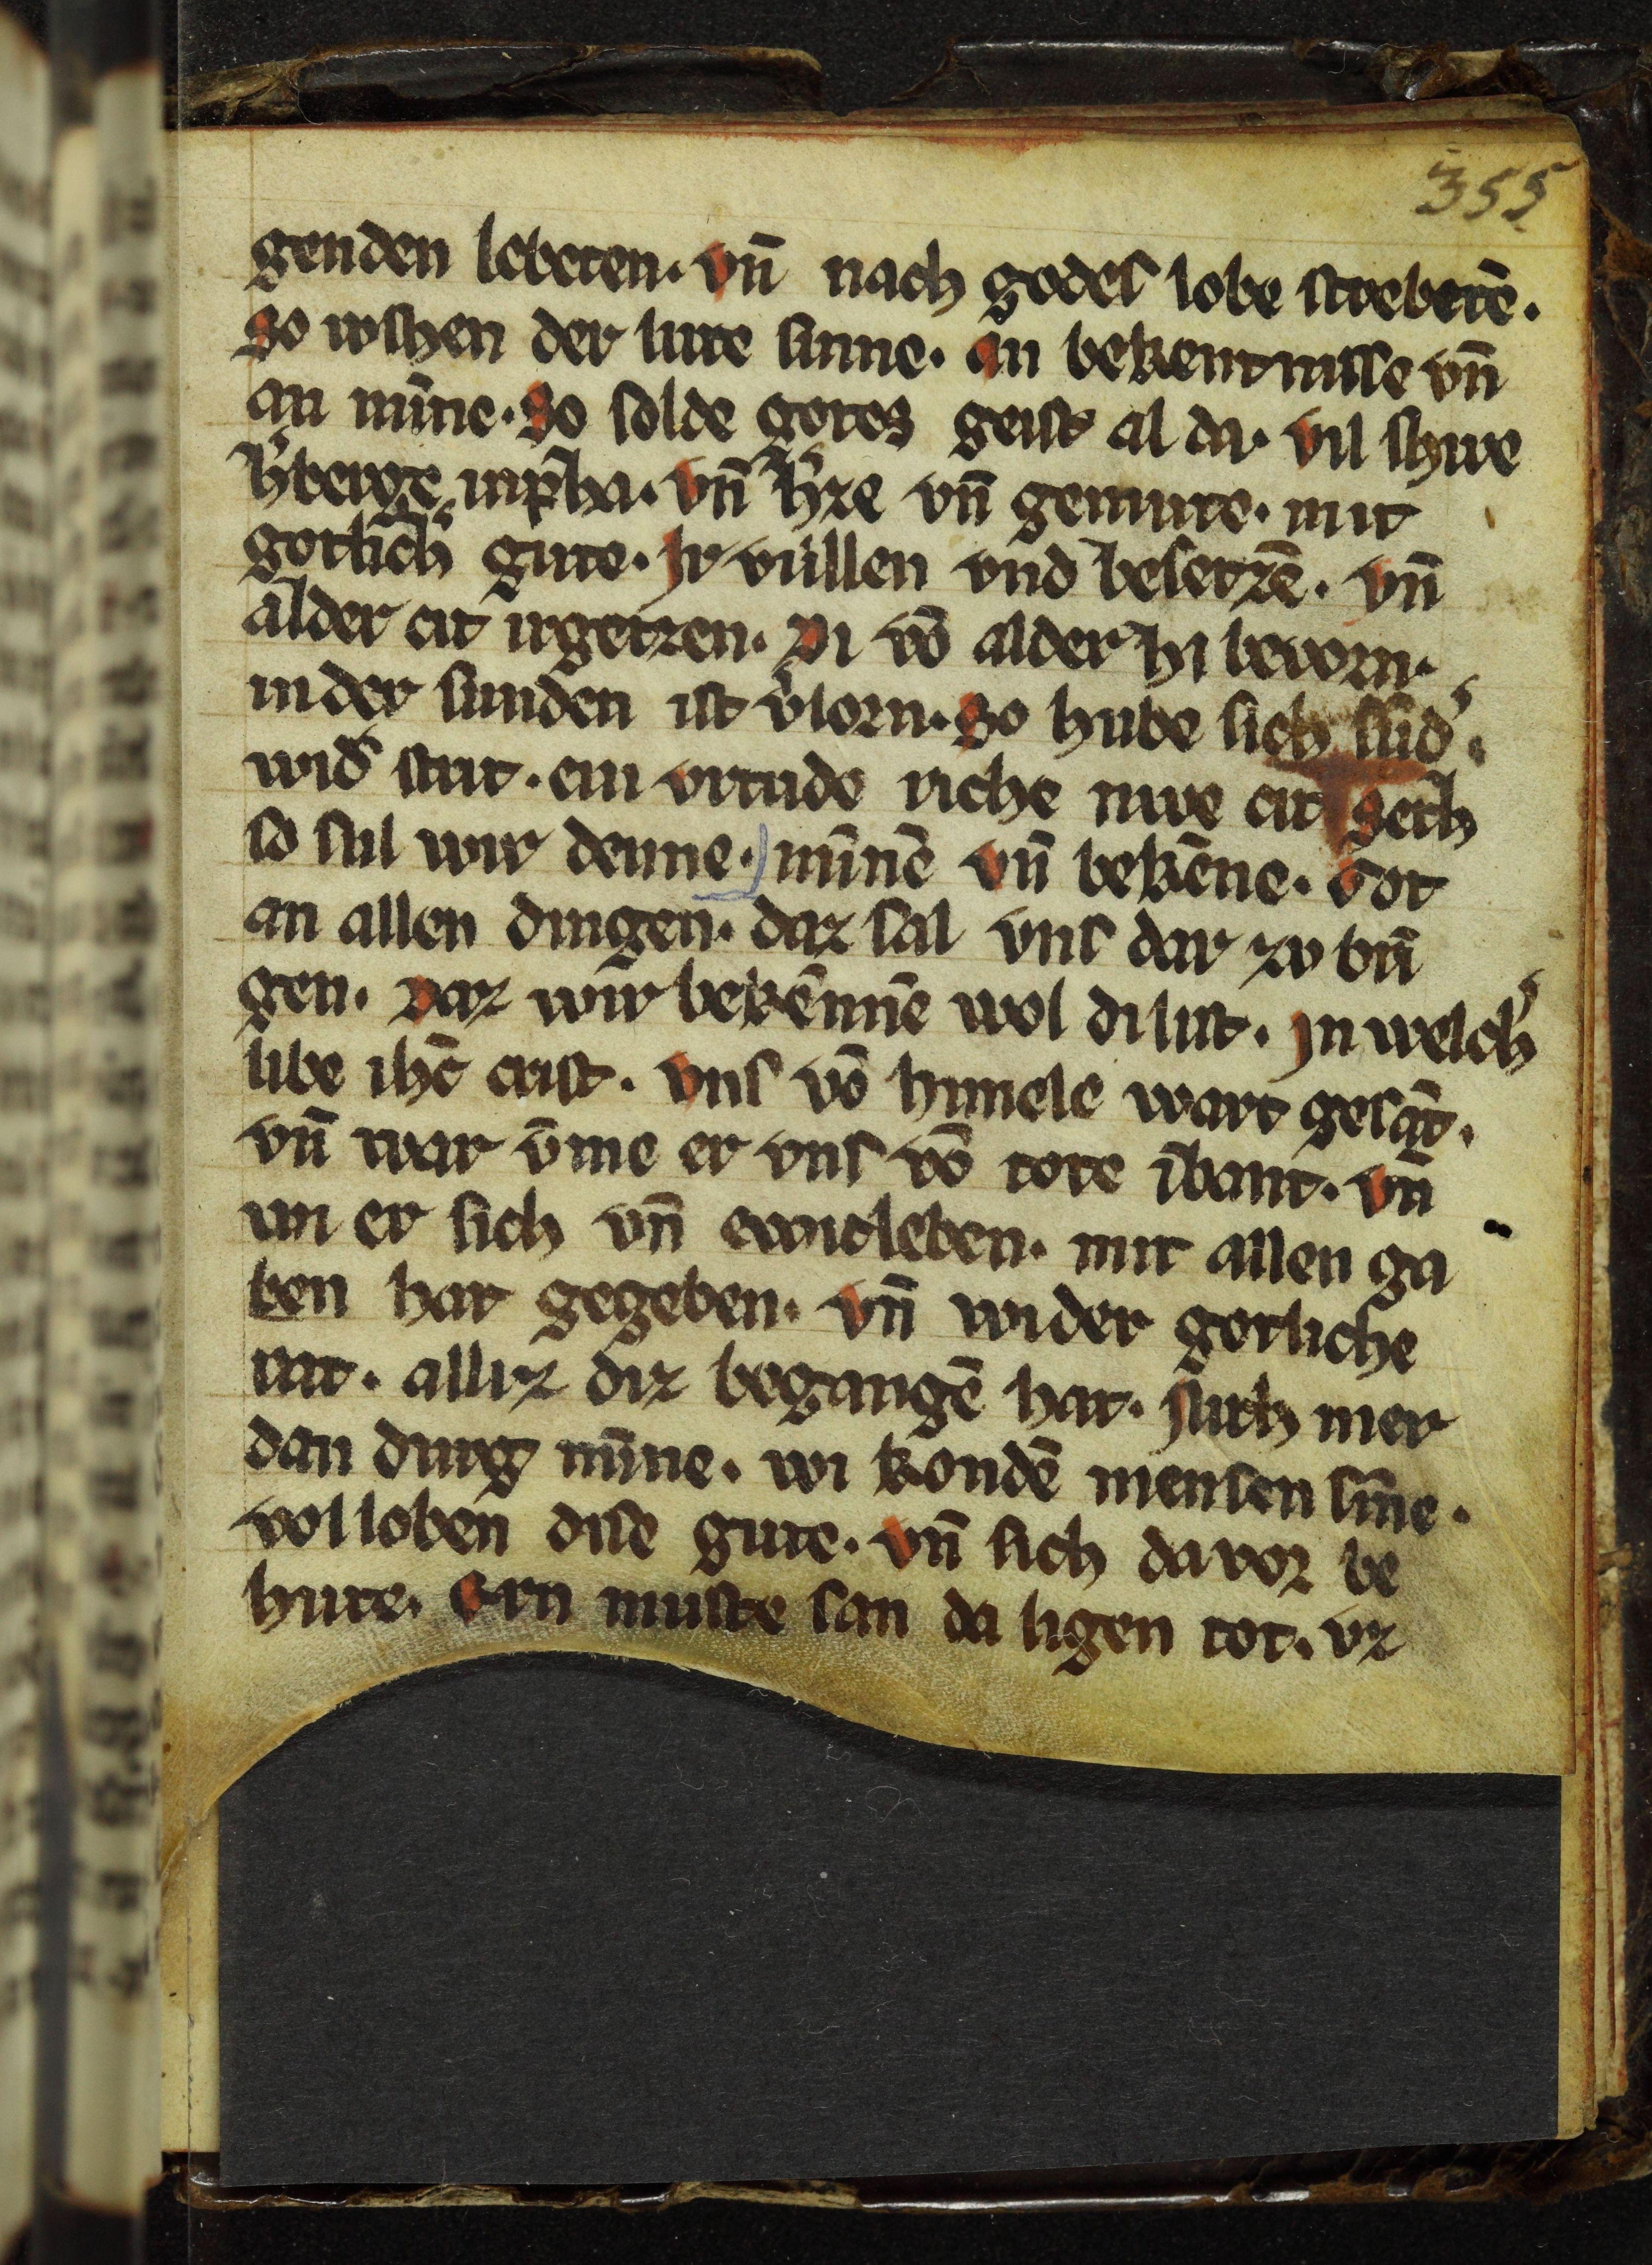 355
genden lebeten. vn̄ nach godes lobe strebetē.
So wshen der lute sinne. an bekentnisse vn̄
an mīne. So solde gotes geist al da. vil schire
h'berge inpha. vn̄ h'ze vn̄ gemute. mit
gotlich' gute. Jr vullen vnd besetzē. vn̄
alder cit irgetzen. Di vō alder hi bevorn.
in der sunden ist v'lorn. So hube sich sūd'.
wid' strit. ein vrtude riche nuwe cit
so sul wir denne. mīnē vn̄ bekēne. Got
an allen dingen. daz sal vns dar zv brī
gen. Daz wir bekēnnē wol di list. Jn welch'
libe ihc̄ crist. vns vō himele wart gesāt.
vn̄ war v̄me er vns vō tote ībant. vn̄
un er sich vn̄ ewicleben. mit allen ga
ben hat gegeben. vn̄ wi der gotliche
rat. alliz diz begangē hat. nicth mer
dan durg mīne. wi kondē mensen sīne.
vol loben dise gute. vn̄ sich da vor be
hute. Ern muste san da ligen tot. vz